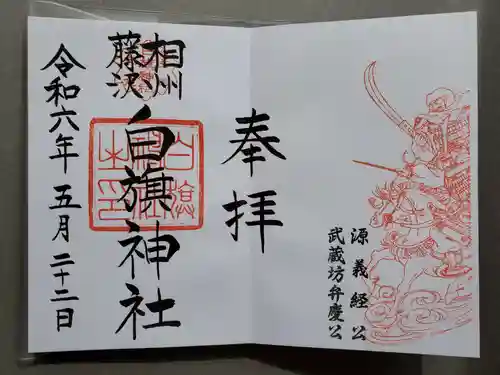 源義経公
武蔵坊弁慶公
奉拝
相州
藤沢
白旗神社
令和六年五月二十二日